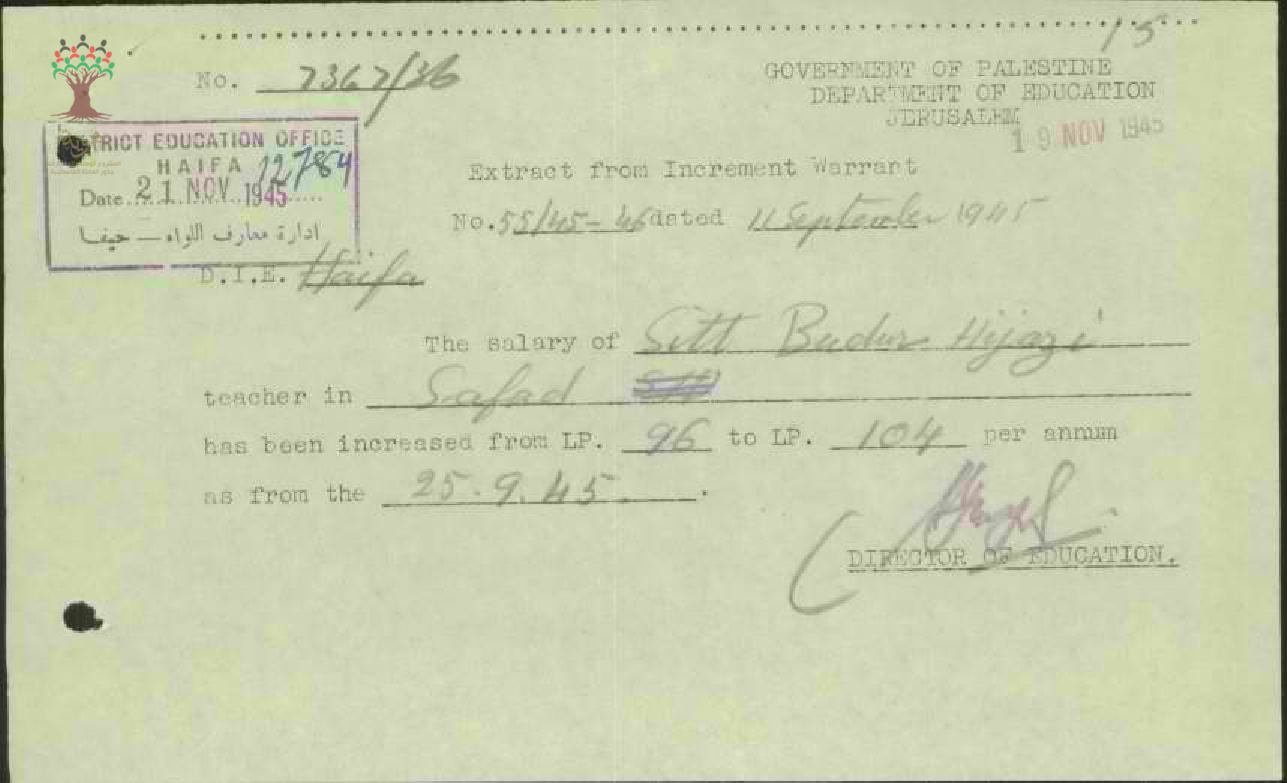 15
No. 7367/36
GOVERNMENT OF PALESTINE
DEPARTMENT OF EDUCATION
JERUSALEM
19 NOV 1945
DISTRICT EDUCATION OFFICE
HAIFA 12784
Date 21 NOV 1945
ادارة معارف اللواء — حيفا
Extract from Increment Warrant
No. 55/45-46 dated 11 September 1945
D.I.E. Haifa
The salary of Sitt Budur Hijazi
teacher in Safad
has been increased from LP. 96 to LP. 104 per annum
as from the 25.9.45.
DIRECTOR OF EDUCATION.